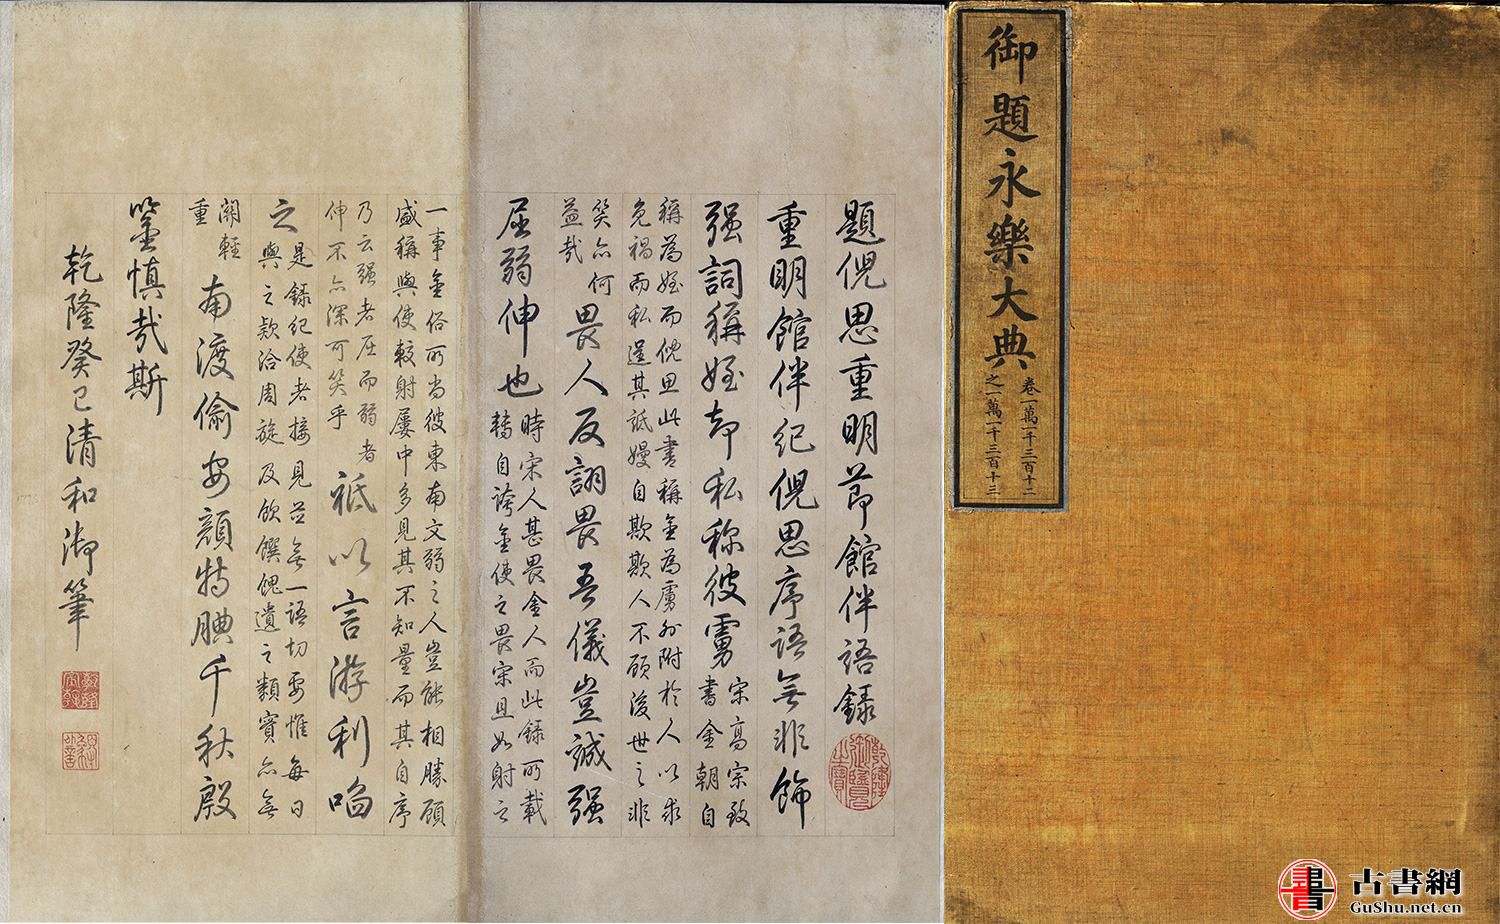 御題永樂大典
卷一萬一千三百十二
之一萬一千三百十三
題倪思重明節館伴語錄
乾隆御覽之寶
重明館伴紀倪思序語無非飾
强詞稱姪却私称彼虜
宋高宗致
書金朝自
稱為姪而倪思此書稱金為虜外附於人以求
免禍而私逞其詆嫚自欺欺人不顧後世之非
笑亦何
益哉
畏人反詡畏吾儀豈誠强
屈弱伸也
時宋人甚畏金人而此錄所載
轉自誇金使之畏宋且如射之
一事金俗所尚彼東南文弱之人豈能相勝顧
盛稱與使較射屢中多見其不知量而其自序
乃云强者屈而弱者
伸不亦深可笑乎
祗以言游利啗
之
是錄紀使者接見並無一語切要惟每日
與之款洽周旋及飲饌餽遺之類實亦無
關輕
重
南渡偷安顏特腆千秋殷
鑒慎哉斯
乾隆癸巳清和御筆
乾隆宸翰
古書網
GuShu.net.cn